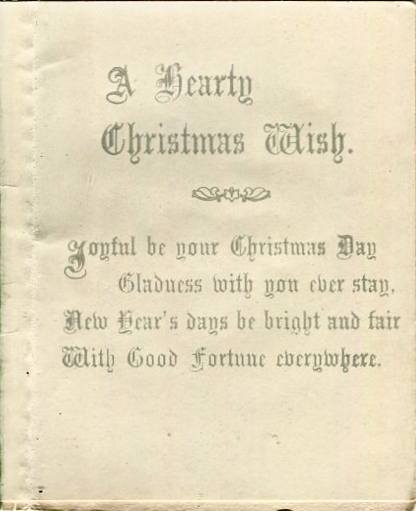 A Hearty
Christmas Wish.
Joyful be your Christmas Day
Gladness with you ever stay,
New Year's days be bright and fair
With Good Fortune everywhere.